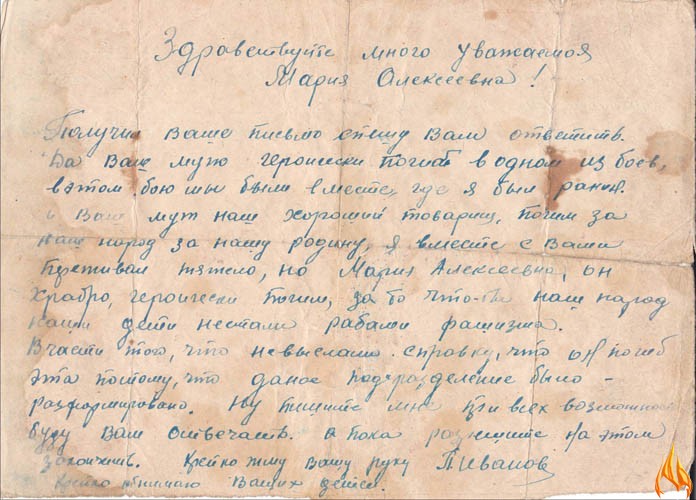 Здравствуйте много уважаемая
Мария Алексеевна!
Получил Ваше письмо спешу Вам ответить.
Да Ваш муж героически погиб в одном из боев,
в этом бою мы были вместе, где я был ранен
и Ваш муж наш хороший товарищ, погиб за
наш народ за нашу родину, я вместе с Вами
переживал тяжело, но Мария Алексеевна, он
храбро, героически погиб, за то что-бы наш народ
наши дети нестали рабами фашизма.
Вчасти того, что невыслали справку, что он погиб
эта потому, что даное подразделение было -
разформировано. Ну пишите мне при всех возможност
буду Вам отвечать. а пока разешите на этом
закончить. Крепко жму Вашу руку П Иванов
Крепко обнимаю Ваших детей.